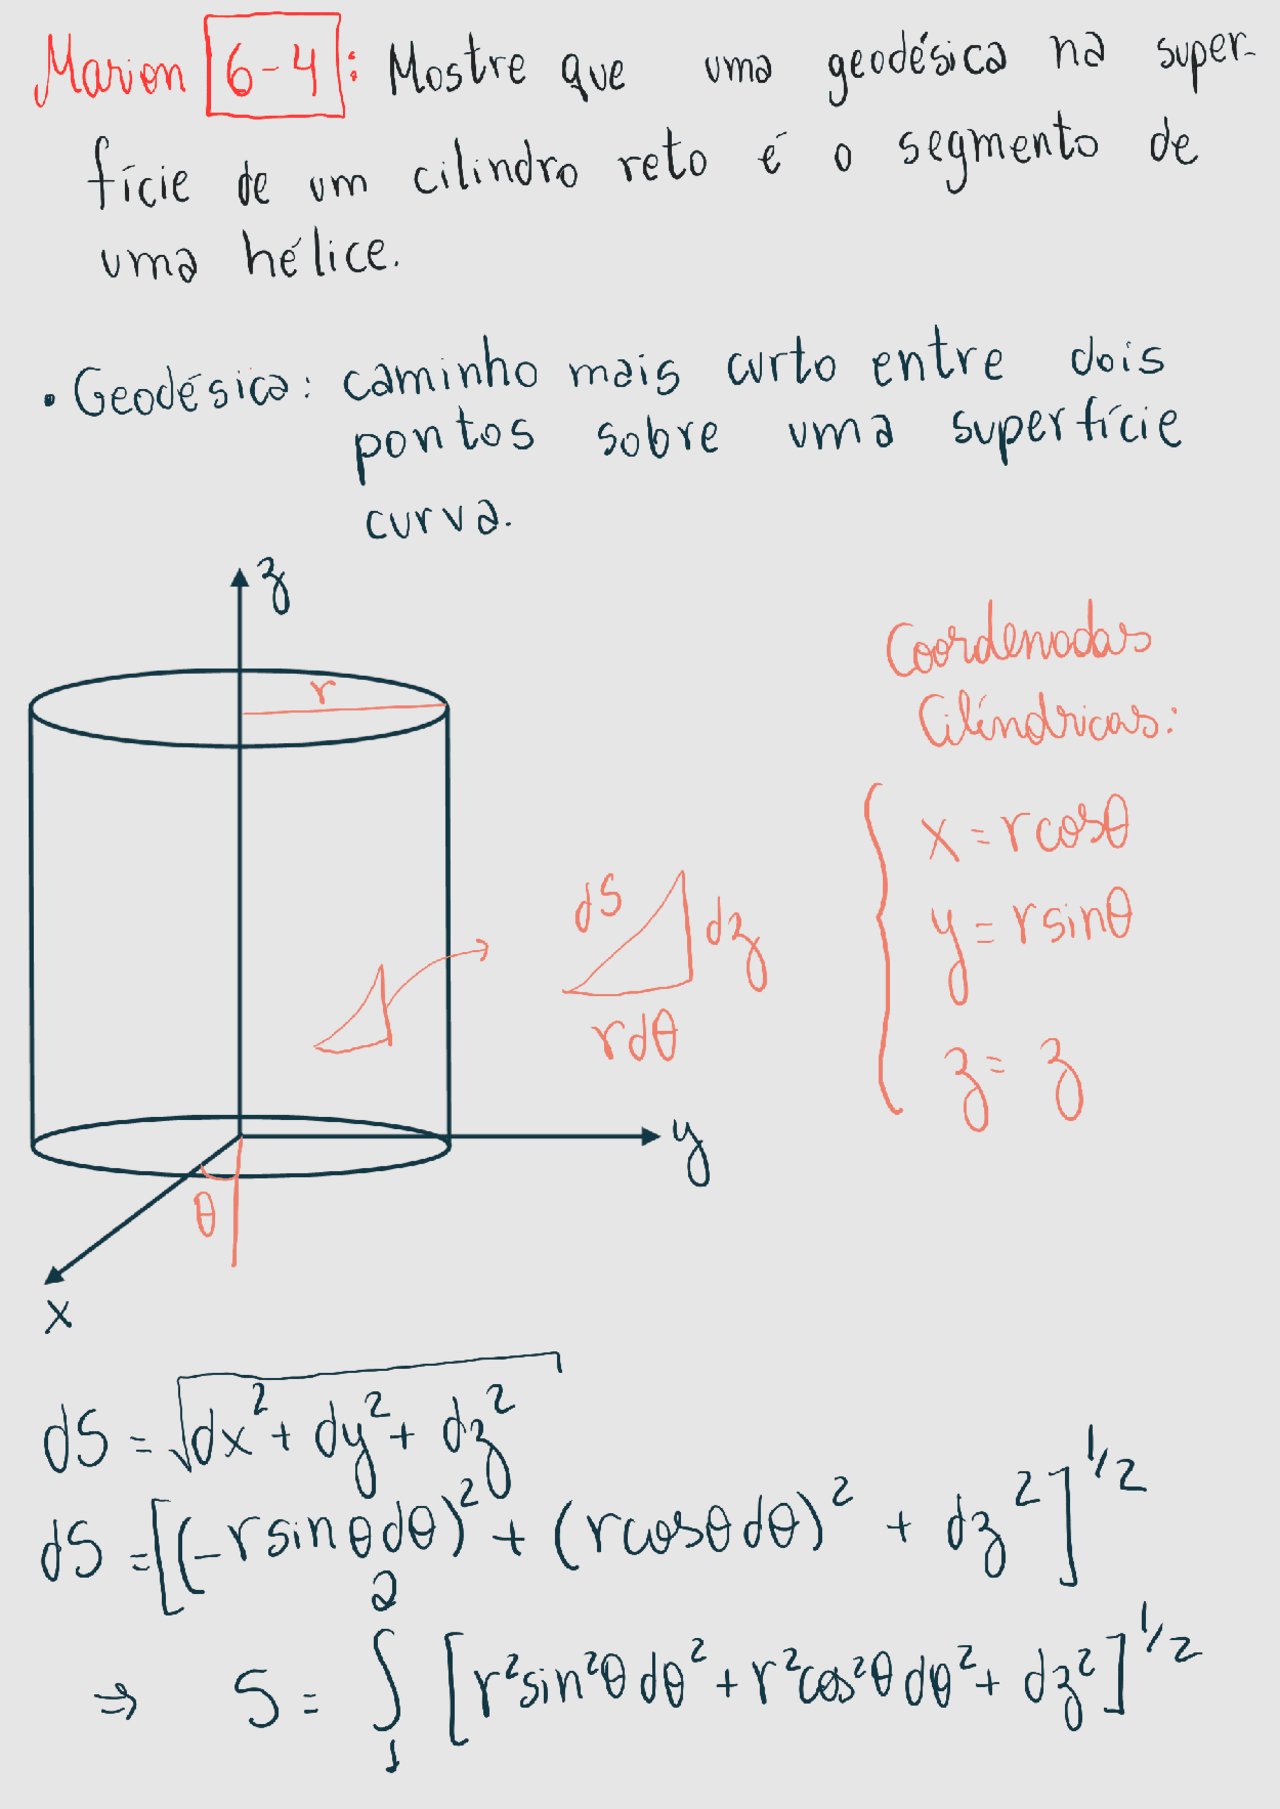 Marion 6-4: Mostre que uma geodésica na super-
fície de um cilindro reto é o segmento de
uma hélice.
• Geodésica: caminho mais curto entre dois
pontos sobre uma superfície
curva.
z
r
Coordenadas
Cilíndricas:
x = r cosθ
y = r sinθ
z = z
dS
dz
rdθ
y
θ
x
dS = √dx² + dy² + dz²
dS = [(-r sinθdθ)² + (r cosθdθ)² + dz²]^1/2
⇒ S = ∫₁² [r²sin²θdθ² + r²cos²θdθ² + dz²]^1/2